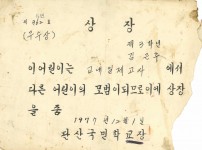 상 장
(우수상)
제 3 학년
김 은 주
이 어린이는 교내 일제고사 에서
다른 어린이의 모범이 되므로 이에 상장
을 줌
1977 년 12 월 1 일
완산국민학교장